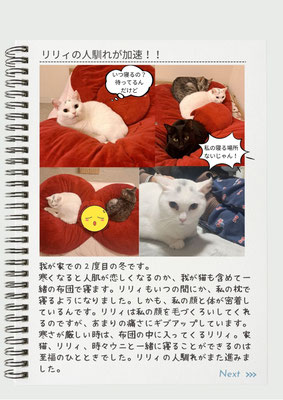 リリィの人馴れが加速！！
いつ寝るの？
待ってるん
だけど
私の寝る場所
ないじゃん！
我が家での２度目の冬です。
寒くなると人肌が恋しくなるのか、我が猫も含めて一
緒の布団で寝ます。リリィもいつの間にか、私の枕で
寝るようになりました。しかも、私の顔と体が密着し
ているんです。リリィは私の顔を毛づくろいしてくれ
るのですが、あまりの痛さにギブアップしています。
寒さが厳しい時は、布団の中に入ってくるリリィ。家
猫、リリィ、時々ウニと一緒に寝ることができるのは
至福のひとときでした。リリィの人馴れがまた進みま
した。
Next >>>